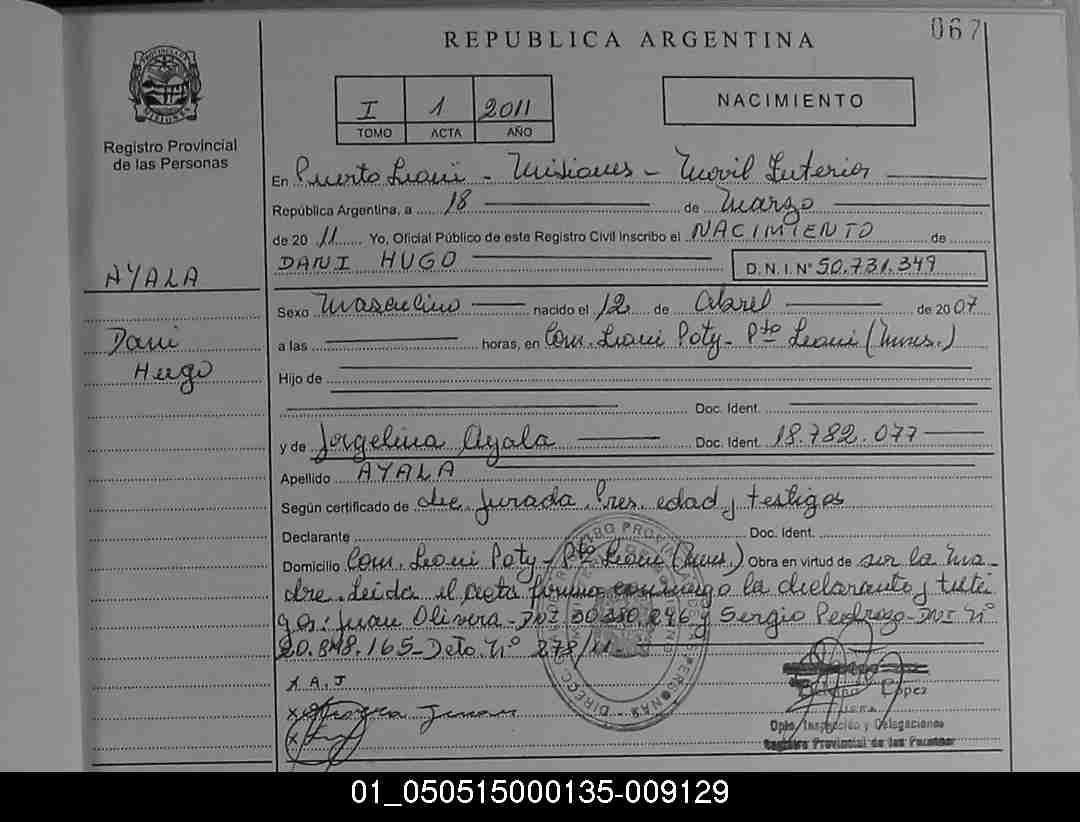 067
REPUBLICA ARGENTINA
PROVINCIA DE MISIONES
Registro Provincial
de las Personas
I 1 2011
TOMO ACTA AÑO
NACIMIENTO
En Puerto Leoni - Misiones - Movil Interior
República Argentina, a 18 de Marzo
de 2011 Yo, Oficial Público de este Registro Civil Inscribo el NACIMIENTO de
DANI HUGO D.N.I. N° 50.731.349
AYALA
Dani
Hugo
Sexo Masculino nacido el 12 de Abril de 2007
a las horas, en Com. Leoni Poty - Pto Leoni (Mnes.)
Hijo de
Doc. Ident.
y de Jorgelina Ayala Doc. Ident. 18.782.077
Apellido AYALA
Según certificado de dec. jurada, Pres. edad y testigos
Declarante Doc. Ident.
Domicilio Com. Leoni Poty - Pto Leoni (Mnes.) Obra en virtud de ser la ma-
dre. Leida el acta firma conmigo la declarante y testi
gos: Juan Olivera - DNI y Sergio Pedrozo - DNI N°
20.848.165 - Dcto. N° 278/11
X A. J
X Juan
X
Lopez
Dpto. Inspección y Delegaciones
Registro Provincial de las Personas
01_050515000135-009129